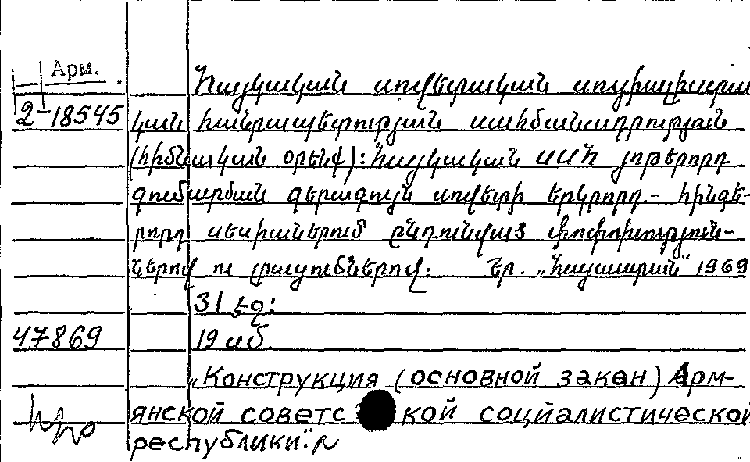 Арм.
Հայկական սովետական սոցիալիստա
2-18545 կան հանրապետության սահմանադրության
(հիմնական օրենք): Հայկական ՍՍՀ յոթերորդ
գումարման գերագույն սովետի երկրորդ - հինգե-
րորդ սեսիաներում ընդունված փոփոխություն-
ներով ու լրացումներով: Եր. „Հայաստան" 1969
31 էջ:
47869 19 սմ.
„Конструкция (основной закан) Арм-
янской советс кой социалистической
республики".